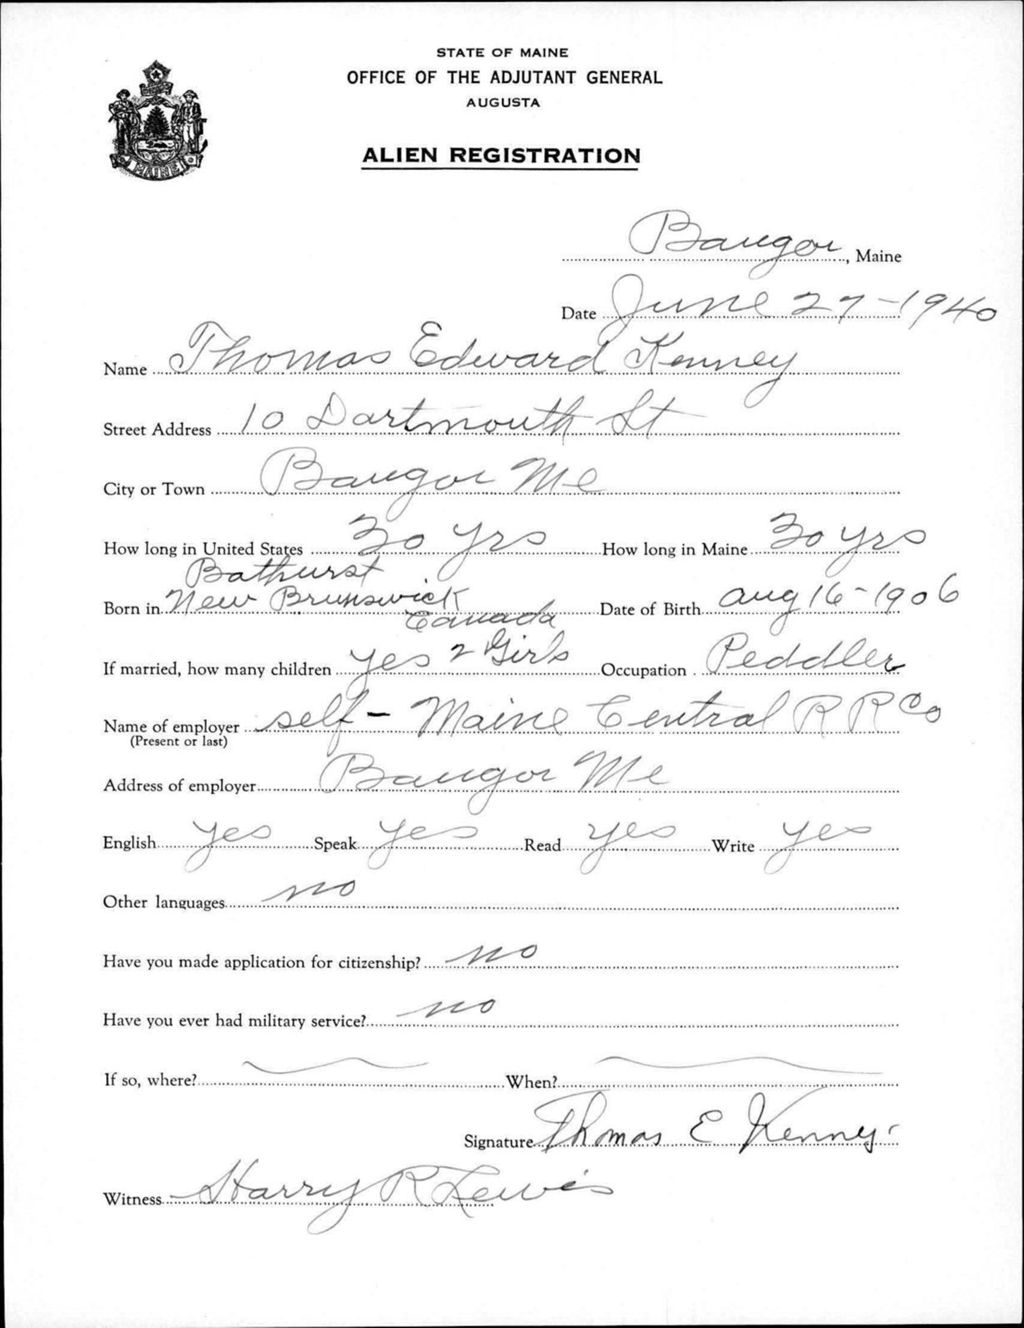 STATE OF MAINE
OFFICE OF THE ADJUTANT GENERAL
AUGUSTA
ALIEN REGISTRATION
MAINE
Bangor, Maine
Date June 27-1940
Name Thomas Edward Kenney
Street Address 10 Dartmouth St
City or Town Bangor Me
How long in United States 30 yrs How long in Maine 30 yrs
Bathurst
Born in New Brunswick Canada Date of Birth Aug 16-1906
If married, how many children yes 2 Girls Occupation Peddler
Name of employer self - Maine Central R R Co
(Present or last)
Address of employer Bangor Me
English yes Speak yes Read yes Write yes
Other languages no
Have you made application for citizenship? no
Have you ever had military service? no
If so, where? When?
Signature Thomas E Kenney
Witness Harry R Lewis